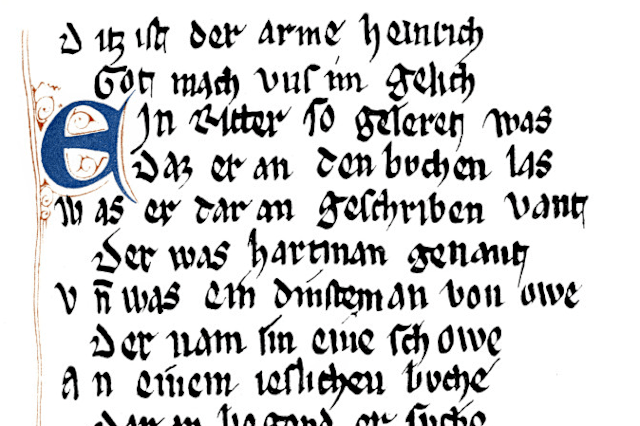 Ditz ist der arme heinrich
Got mach vns im gelich
EIn Ritter so geleret was
Daz er an den buchen las
Was er dar an geschriben vant
Der was hartman genant
Vñ was ein dinsteman von owe
Der nam im eine schowe
An einem ieslichen buche
Dar an begond er suche